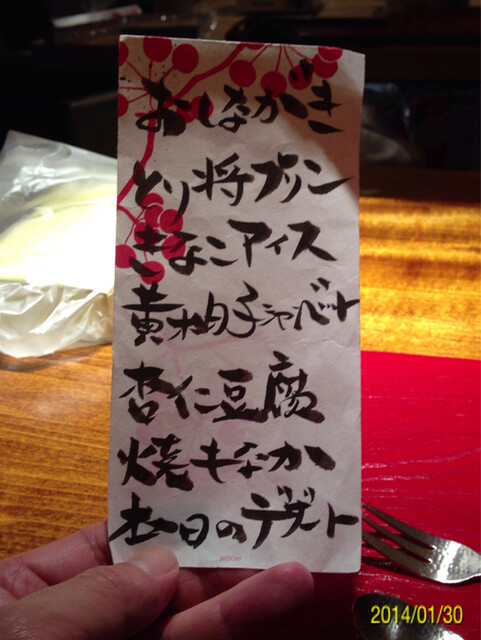 おしながき
とり将プリン
きなこアイス
黄柚子シャーベット
杏仁豆腐
焼きなか
本日のデザート
MIDORI
2014/01/30